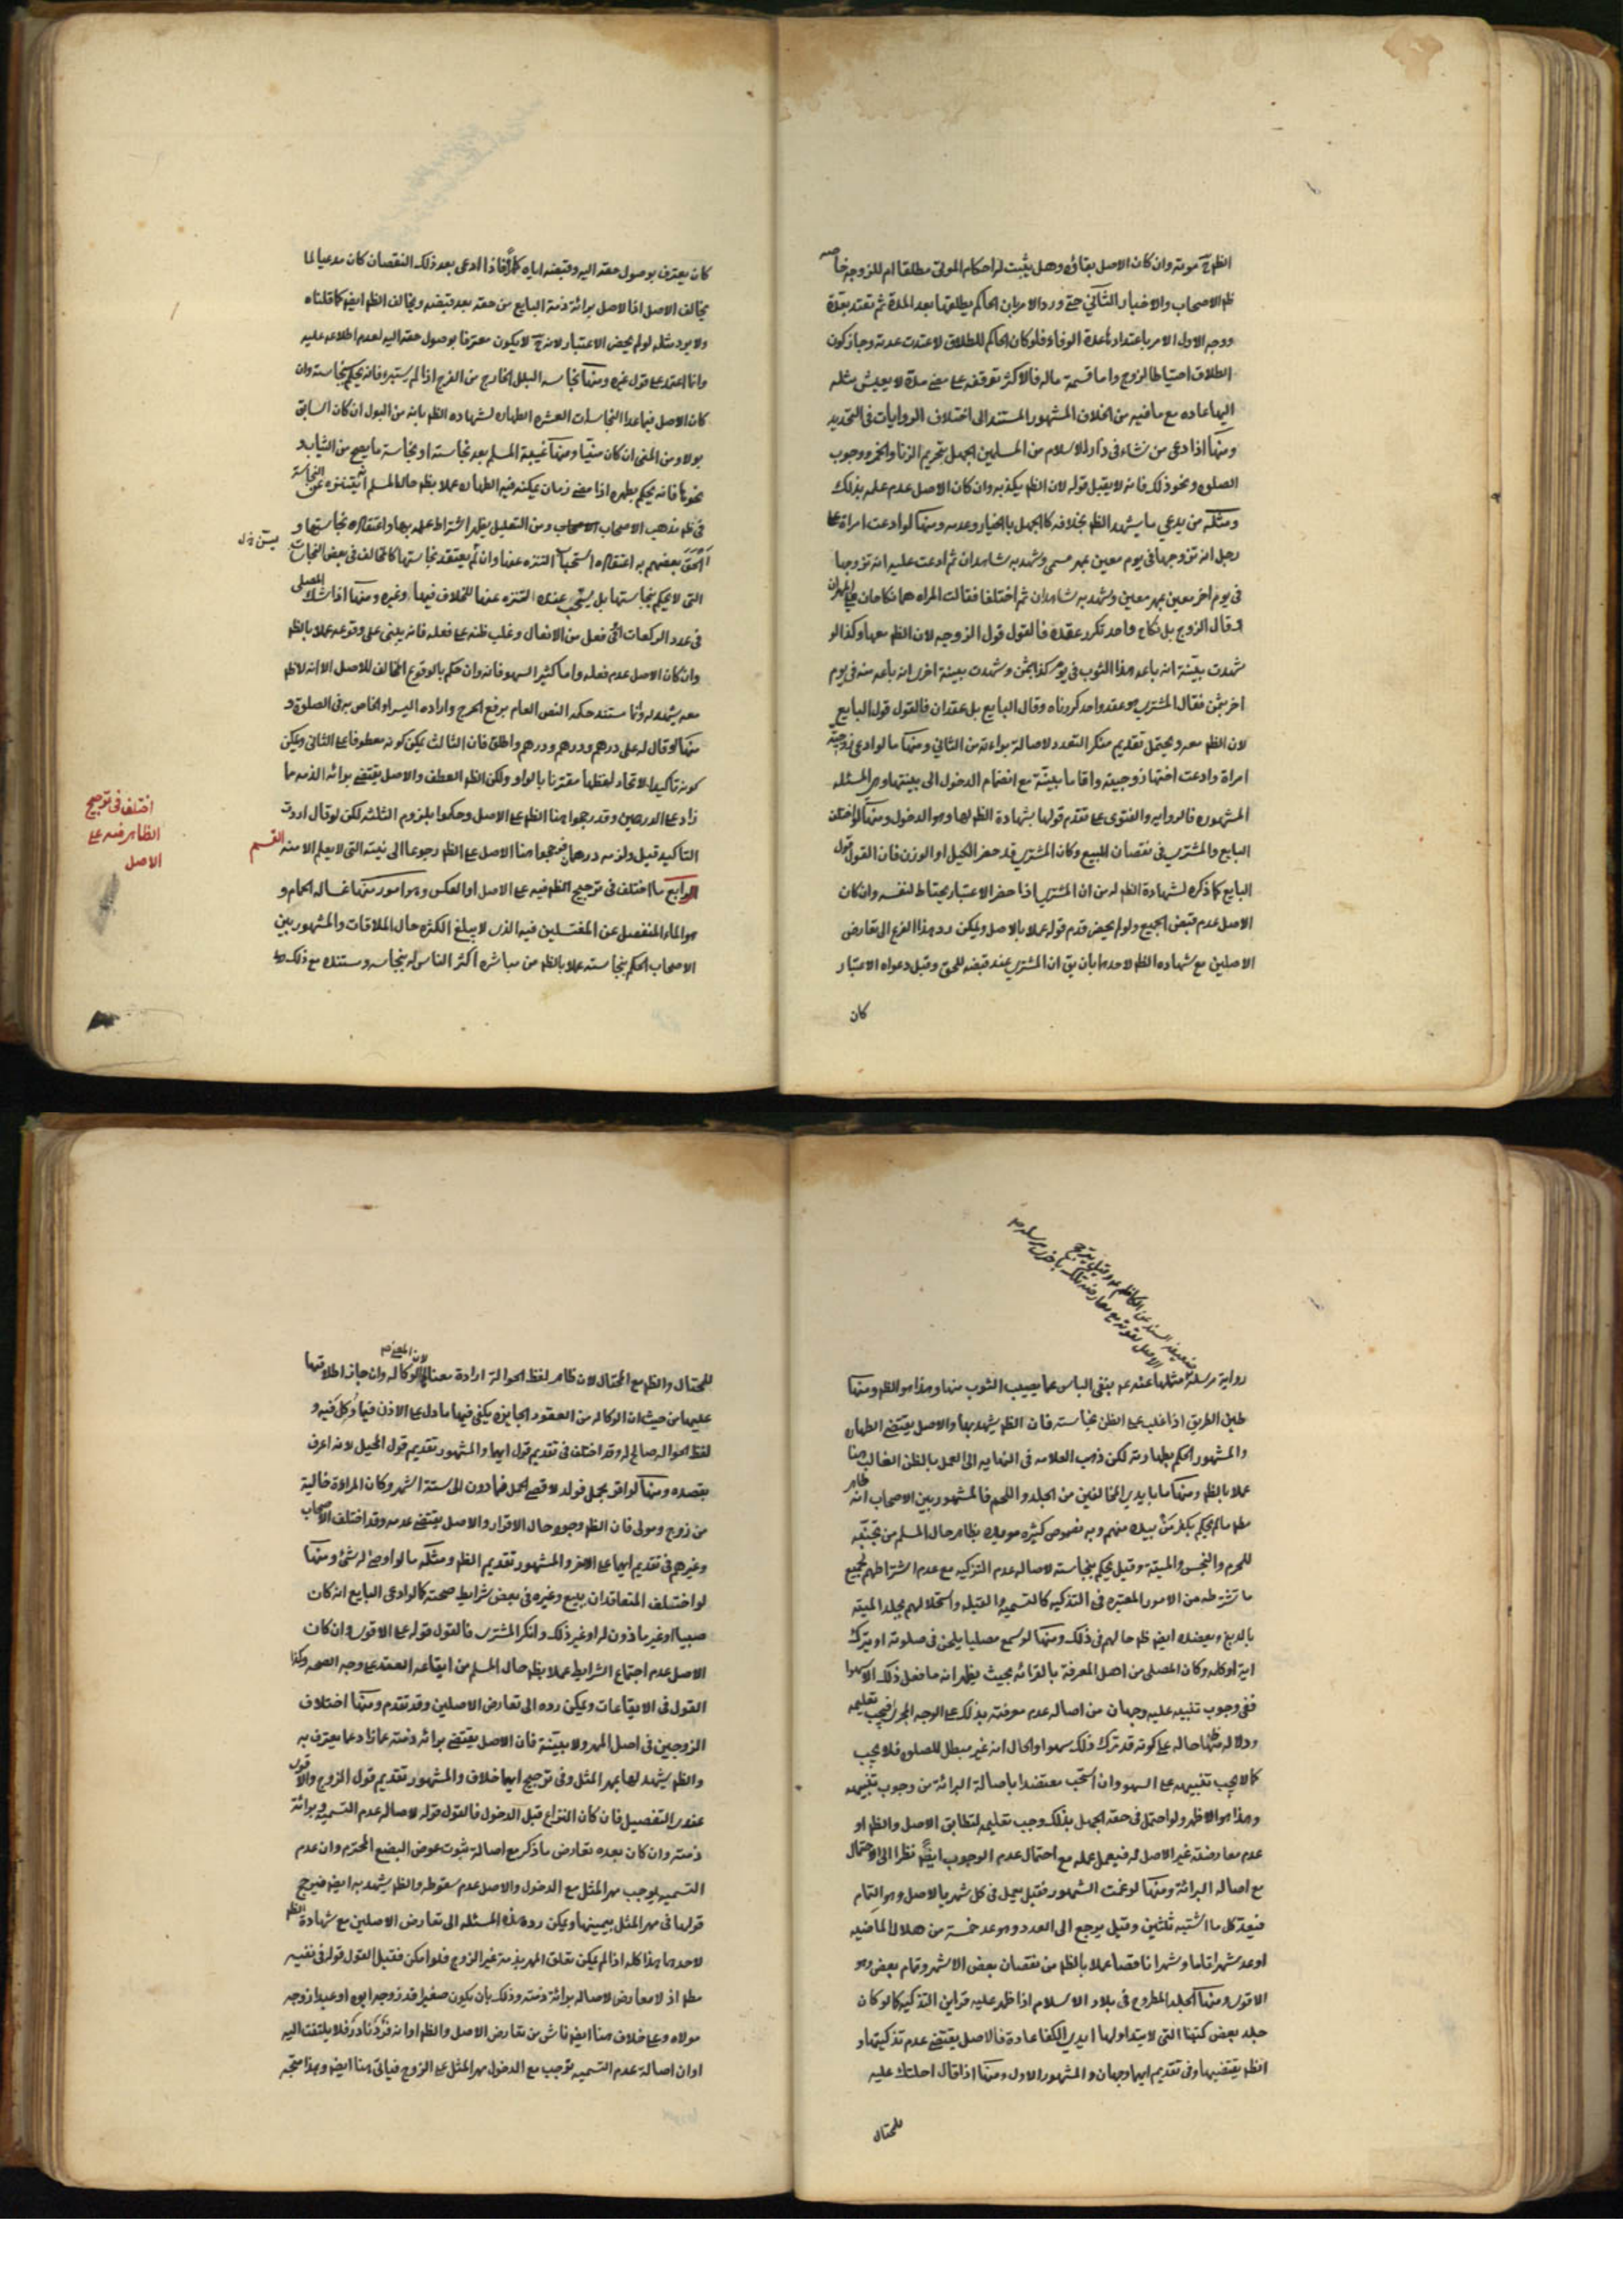 الظن ح موته وان كان الاصل بقاؤه وهل يثبت له احكام الموتى مطلقا ام للزوجة خاصه
ظم الاصحاب والاخبار الثاني حتى ورد الامر بان الحاكم يطلقها بعد المدة ثم تعتد بعدة
ووجه الاول الامر باعتدادها عدة الوفاة فلو كان الحاكم للطلاق لاعتدت عدته وجاز كون
الطلاق احتياطا للزوج واما قسمة ماله فالاكثر توقفه على مضي مدة لا يعيش مثله
اليها عاده مع ما فيه من الخلاف المشهور المستند الى اختلاف الروايات في التحديد
ومنها اذا ادعى من نشاء في دار الاسلام من المسلمين الجهل بتحريم الزنا والخمر ووجوب
الصلوة ونحو ذلك فانه لا يقبل قوله لان الظم يكذبه وان كان الاصل عدم علمه بذلك
ومثله من يدعي ما يشهد الظم بخلافه كالجهل بالخيار وعدمه ومنها لو ادعت امراة على
رجل انه تزوجها في يوم معين بمهر مسمى وشهد به شاهدان ثم ادعت عليه انه تزوجها
في يوم اخر معين بمهر معين وشهد به شاهدان ثم اختلفا فقالت المراه هما نكاحان فلي المهران
وقال الزوج بل نكاح واحد تكرر عقده فالقول قول الزوجه لان الظم معها وكذا لو
شهدت بينة انه باعه هذا الثوب في يوم كذا بثمن وشهدت بينة اخرى انه باعه منه في يوم
اخر بثمن فقال المشتري هو عقد واحد كررناه وقال البايع بل عقدان فالقول قول البايع
لان الظم معه ويحتمل تقديم منكر التعدد لاصالة براءته من الثاني ومنها ما لو ادعى زوجية
امراة وادعت اختها زوجيته واقاما بينة مع انضمام الدخول الى بينتها وهي المسئله
المشهوره فالروايه والفتوى على تقدم قولها بشهادة الظم لها وهو الدخول ومنها لو اختلف
البايع والمشتري في نقصان المبيع وكان المشتري قد حضر الكيل او الوزن فان القول قول
البايع كما ذكره لشهادة الظم له من ان المشتري اذا حضر الاعتبار يحتاط لنفسه وان كان
الاصل عدم قبض الجميع ولو لم يحضر قدم قوله عملا بالاصل ويمكن رد هذا الفرع الى تعارض
الاصلين مع شهاده الظم لاحدهما بان يق ان المشتري عند قبضه للحق وقبل دعواه الاعتبار
كان
كان يعترف بوصول حقه اليه وقبضه اياه كملا فاذا ادعى بعد ذلك النقصان كان مدعيا لما
يخالف الاصل اذ الاصل برائة ذمة البايع من حقه بعد قبضه ويخالف الظم ايضا كما قلناه
ولا يرد مثله لو لم يحضر الاعتبار لانه ح لا يكون معترفا بوصول حقه اليه لعدم اطلاعه عليه
وانما اعتمد على قول غيره ومنها نجاسه البلل الخارج من الفرج اذا لم يستبرء فانه يحكم بنجاسته وان
كان الاصل فيما عدا النجاسات العشره الطهاره لشهاده الظم بانه من البول ان كان السابق
بولا ومن المني ان كان منيا ومنها غيبة المسلم بعد نجاسته او نجاسة ما يصحبه من الثياب و
نحوها فانه يحكم بطهره اذا مضى زمان يمكنه فيه الطهاره عملا بظم حال المسلم انه يتنزه عن النجاسة
في ظم مذهب الاصحاب ومن التعليل يظهر اشتراط علمه بها واعتقاده نجاستها و
الحق بعضهم به اعتقاده استحباب التنزه عنها وان لم يعتقد نجاستها كالمخالف في بعض النجاسات
التي لا يحكم بنجاستها بل يستحب عنده التنزه عنها للخلاف فيها وغيره ومنها اذا شك المصلي
في عدد الركعات او في فعل من الافعال وغلب ظنه على فعله فانه يبني على وقوعه عملا بالظم
وان كان الاصل عدم فعله واما كثير السهو فانه وان حكم بالوقوع المخالف للاصل الا انه لا ظم
معه يشهد له وانما مستند حكمه النص العام برفع الحرج واراده اليسر او الخاص به في الصلوة و
منها لو قال له علي درهم ودرهم ودرهم واطلق فان الثالث يمكن كونه معطوفا على الثاني ويمكن
كونه تاكيدا لاتحاد لفظهما مقترنا بالواو ولكن الظم العطف والاصل يقتضي برائه الذمه مما
زاد على الدرهمين وقد رجحوا هنا الظم على الاصل وحكموا بلزوم الثلثه لكن لو قال اردت
التاكيد قبل ولزمه درهمان فرجحوا هنا الاصل على الظم رجوعا الى نيته التي لا يعلم الا منه القسم
الرابع ما اختلف في ترجيح الظم فيه على الاصل او العكس وهو امور منها غساله الحمام و
هو الماء المنفصل عن المغتسلين فيه الذي لا يبلغ الكثره حال الملاقات والمشهور بين
الاصحاب الحكم بنجاسته عملا بالظم من مباشره اكثر الناس له بنجاسه ومستنده مع ذلك
اختلف في ترجيح
الظاهر فيه على
الاصل
رواية مرسله مثلها عنه عم بنفي الباس عما يصيب الثوب منها وهذا هو الظم ومنها
طين الطريق اذا غلب على الظن نجاسته فان الظم يشهد بها والاصل يقتضي الطهاره
والمشهور الحكم بطهارته لكن ذهب العلامه في النهايه الى العمل بالظن الغالب هنا
عملا بالظم ومنها ما بايدي المخالفين من الجلد واللحم فالمشهور بين الاصحاب انه طاهر
مطم ما لم يحكم بكفر من بيده منهم وبه نصوص كثيره مويده بظاهر حال المسلم من تجنبه
للمحرم والنجس والميتة وقيل يحكم بنجاسته لاصاله عدم التذكيه مع عدم اشتراطهم لجميع
ما نشترطه من الامور المعتبره في التذكيه كالتسميه والقبله واستحلالهم جلد الميته
بالدبغ ويعضده ايضا ظم حالهم في ذلك ومنها لو سمع مصليا يلحن في صلوته او يترك
اية او كلمه وكان المصلي من اهل المعرفة بالقرائه بحيث يظهر انه ما فعل ذلك الا سهوا
ففي وجوب تنبيهه عليه وجهان من اصاله عدم معرفته بذلك على الوجه المجزي فيجب تعليمه
ودلاله ظاهر حاله على كونه قد ترك ذلك سهوا والحال انه غير مبطل للصلوه فلا يجب
كما لا يجب تنبيهه على السهو وان استحب معتضدا باصالة البرائة من وجوب تنبيهه
وهذا هو الاظهر ولو احتمل في حقه الجهل بذلك وجب تعليمه لتطابق الاصل والظم او
عدم معارضته غير الاصل له فيعمل عمله مع احتمال عدم الوجوب ايضا نظرا الى الاحتمال
مع اصاله البرائة ومنها لو غمت الشهور فقيل يعمل في كل شهر بالاصل وهو التمام
فيعد كل ما اشتبه ثلثين وقيل يرجع الى العدد وهو عد خمسة من هلال الماضيه
او عد شهرا تاما وشهرا ناقصا عملا بالظم من نقصان بعض الاشهر وتمام بعض وهو
الاقوى ومنها الجلد المطروح في بلاد الاسلام اذا ظهر عليه قراين التذكيه كما لو كان
جلد بعض كتبنا التي لا يتداولها ايدي الكفار عادة فالاصل يقتضي عدم تذكيتها و
الظم يقتضيها وفي تقديم ايهما وجهان والمشهور الاول ومنها اذا قال احلتك عليه
للمحتال
للمحتال والظم مع المحتال لان ظاهر لفظ الحوالة ارادة معناها لا الوكاله وان جاز اطلاقها
عليها من حيث ان الوكاله من العقود الجايزه يكفي فيها ما دل على الاذن فيما وكل فيه و
لفظ الحواله صالح له وقد اختلف في تقديم قول ايهما والمشهور تقديم قول المحيل لانه اعرف
بقصده ومنها لو اقر بحمل فولد لاقصى الحمل فما دون الى ستة اشهر وكان المراة خالية
من زوج ومولى فان الظم وجوده حال الاقرار والاصل يقتضي عدمه وقد اختلف الاصحاب
وغيرهم في تقديم ايهما على الاخر والمشهور تقديم الظم ومثله ما لو اوصى له بشئ ومنها
لو اختلف المتعاقدان ببيع وغيره في بعض شرايط صحته كما لو ادعى البايع انه كان
صبيا او غير ماذون له او غير ذلك وانكر المشتري فالقول قوله على الاقوى وان كان
الاصل عدم اجتماع الشرايط عملا بظم حال المسلم من ايقاعه العقد على وجه الصحه وكذا
القول في الايقاعات ويمكن رده الى تعارض الاصلين وقد تقدم ومنها اختلاف
الزوجين في اصل المهر ولا بينة فان الاصل يقتضي برائه ذمته عما زاد عما يعترف به
والظم يشهد لها بمهر المثل وفي ترجيح ايهما خلاف والمشهور تقديم قول الزوج والاقوى
عندي التفصيل فان كان النزاع قبل الدخول فالقول قوله لاصاله عدم التسميه وبرائة
ذمته وان كان بعده تعارض ما ذكر مع اصالة ثبوت عوض البضع المحترم وان عدم
التسميه يوجب مهر المثل مع الدخول والاصل عدم سقوطه والظم يشهد به ايضا فيرجح
قولها في مهر المثل بيمينها ويمكن رد هذه المسئله الى تعارض الاصلين مع شهادة الظم
لاحدهما هذا كله اذا لم يمكن تعلق المهر بذمة غير الزوج فلو امكن فقيل القول قوله في نفيه
مطم اذ لا معارض لاصاله برائة ذمته وذلك بان يكون صغيرا قد زوجه ابوه او عبدا زوجه
مولاه وعلى خلاف هنا ايضا ناش من تعارض الاصل والظم او انه فرد نادر فلا يلتفت اليه
او ان اصالة عدم التسميه توجب مع الدخول مهر المثل على الزوج فياتي هنا ايضا وهذا متجه